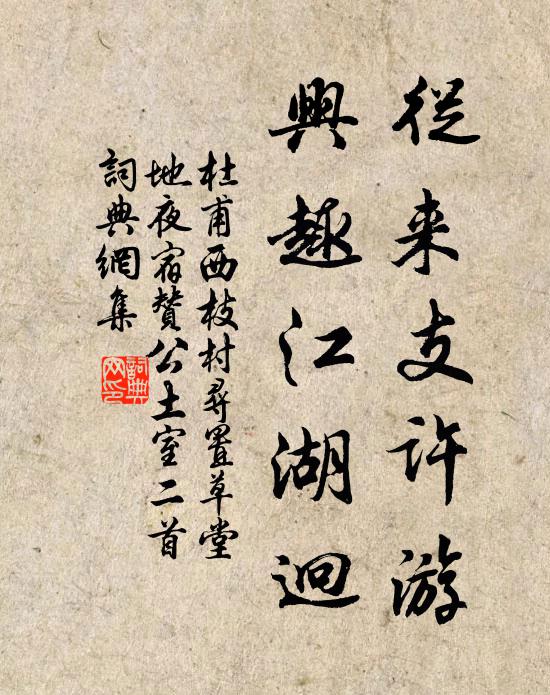 從来支许游
興趣江湖迥
杜甫西枝村尋置草堂
地夜宿贊公土室二首
詞典網集
詞典網印